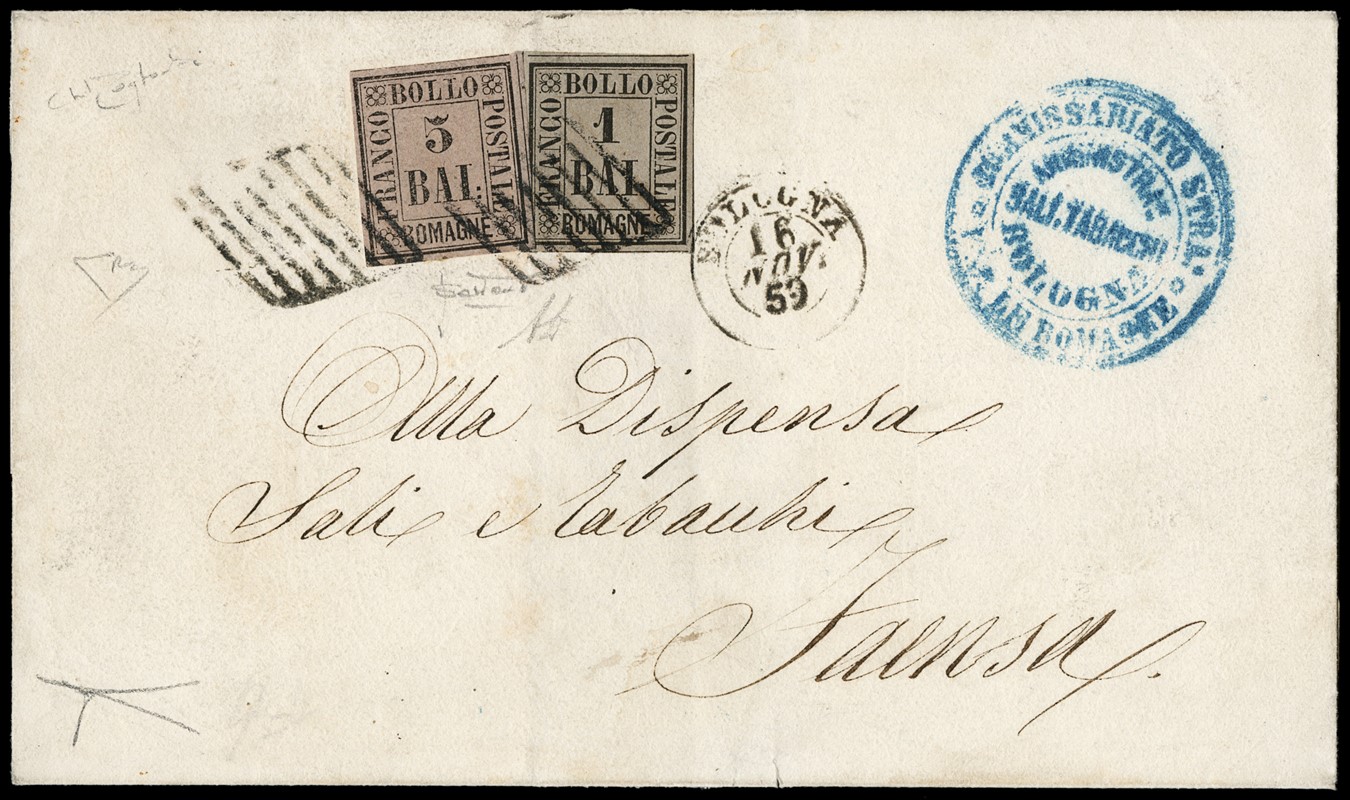 BOLLO
FRANCO
5
BAI.
POSTALE
ROMAGNE
BOLLO
FRANCO
1
BAI
POSTALE
ROMAGNE
BOLOGNA
16
NOV.
59
STRA:
SALI, TABACCHI
BOLOGNA
LE ROMAGNE
Alla Dispensa
Sali e Tabacchi
Faensa.